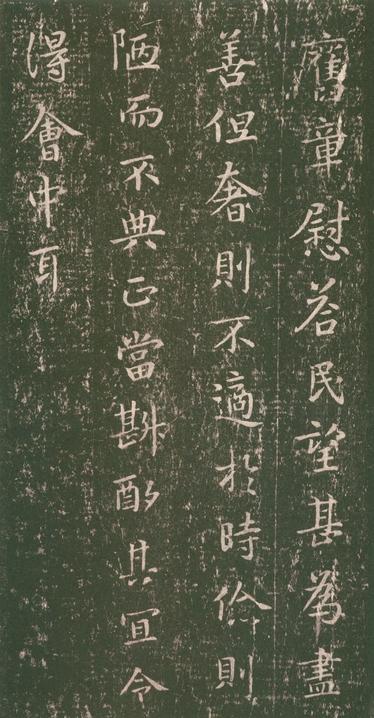 舊章慰荅民望甚為盡
善但奢則不適於時儉則
陋而不典正當斟酌其宜令
得會中耳